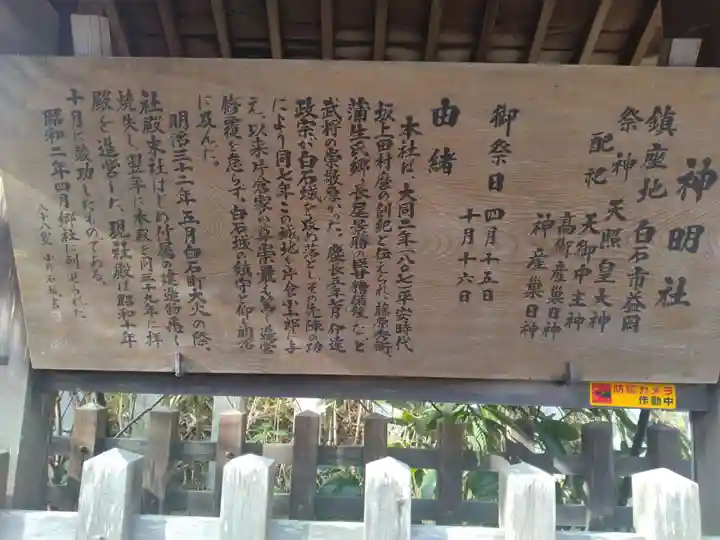 神明社
鎮座地 白石市益岡
祭神 天照皇大神
配祀 天御中主神
高御産巣日神
神産巣日神
御祭日 四月十五日
十月十六日
由緒
本社は、大同二年(八〇七平安時代)
坂上田村麿の創祀と伝えられ、藤原秀衡、
蒲生氏郷、長尾景勝の
武将の崇敬篤かった。慶長五年七月伊達
政宗が白石城を攻め落とし、その先陣の功
により同七年この城地を片倉小十郎に与
え、以来片倉家の尊崇最も篤く造営
修覆を怠らず、白石城の鎮守と仰ぎ明治
に及んだ。
明治三十二年五月白石町大火の際、
社殿末社はじめ付属の建造物悉く
焼失し、翌年に本殿を同三十九年に拝
殿を造営した。現社殿は昭和十年
十月に竣功したものである。
昭和二年四月郷社に列せられた
防犯カメラ
作動中